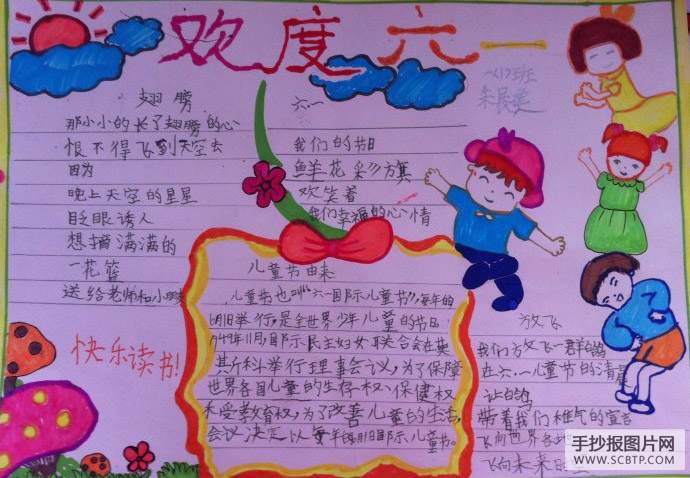 欢度六一
一(1)班
翅膀
那小小的长了翅膀的心
恨不得飞到天空去
因为
晚上天空的星星
眨眼诱人
想摘满满的
一花篮
送给老师和小朋友
六一
我们的节日
鲜花彩旗
欢笑着
我们幸福的心情
快乐读书!
儿童节由来
儿童节也叫“六一国际儿童节”,每年的
6月1日举行,是全世界少年儿童的节日。
1949年11月国际民主妇女联合会在莫
斯科举行理事会议,为了保障
世界各国儿童的生存权、保健权
和受教育权,为了改善儿童的生活,
会议决定以每年的6月1日国际儿童节。
放飞
我们放飞一群白鸽
在六一儿童节的清晨
让白鸽
带着我们稚气的宣言
飞向世界各地
飞向未来
手抄报图片网
WWW.SCBTP.COM